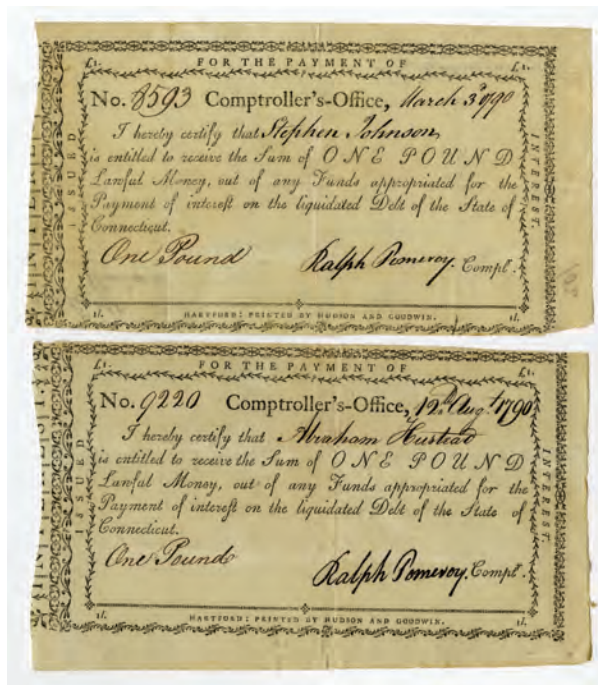 FOR THE PAYMENT OF
£1. £1.
No. 8593 Comptroller's-Office, March 3d 1790
I hereby certify that Stephen Johnson
is entitled to receive the Sum of ONE POUND
Lawful Money, out of any Funds appropriated for the
Payment of intereſt on the liquidated Debt of the State of
Connecticut.
One Pound Ralph Pomeroy. Compt^r.
ISSUED
INTEREST.
1l. HARTFORD: PRINTED BY HUDSON AND GOODWIN. 1l.
FOR THE PAYMENT OF
£1. £1.
No. 9220 Comptroller's-Office, 12th Augt 1790
I hereby certify that Abraham Hustead
is entitled to receive the Sum of ONE POUND
Lawful Money, out of any Funds appropriated for the
Payment of intereſt on the liquidated Debt of the State of
Connecticut.
One Pound Ralph Pomeroy. Compt^r.
ISSUED
INTEREST.
1l. HARTFORD: PRINTED BY HUDSON AND GOODWIN. 1l.